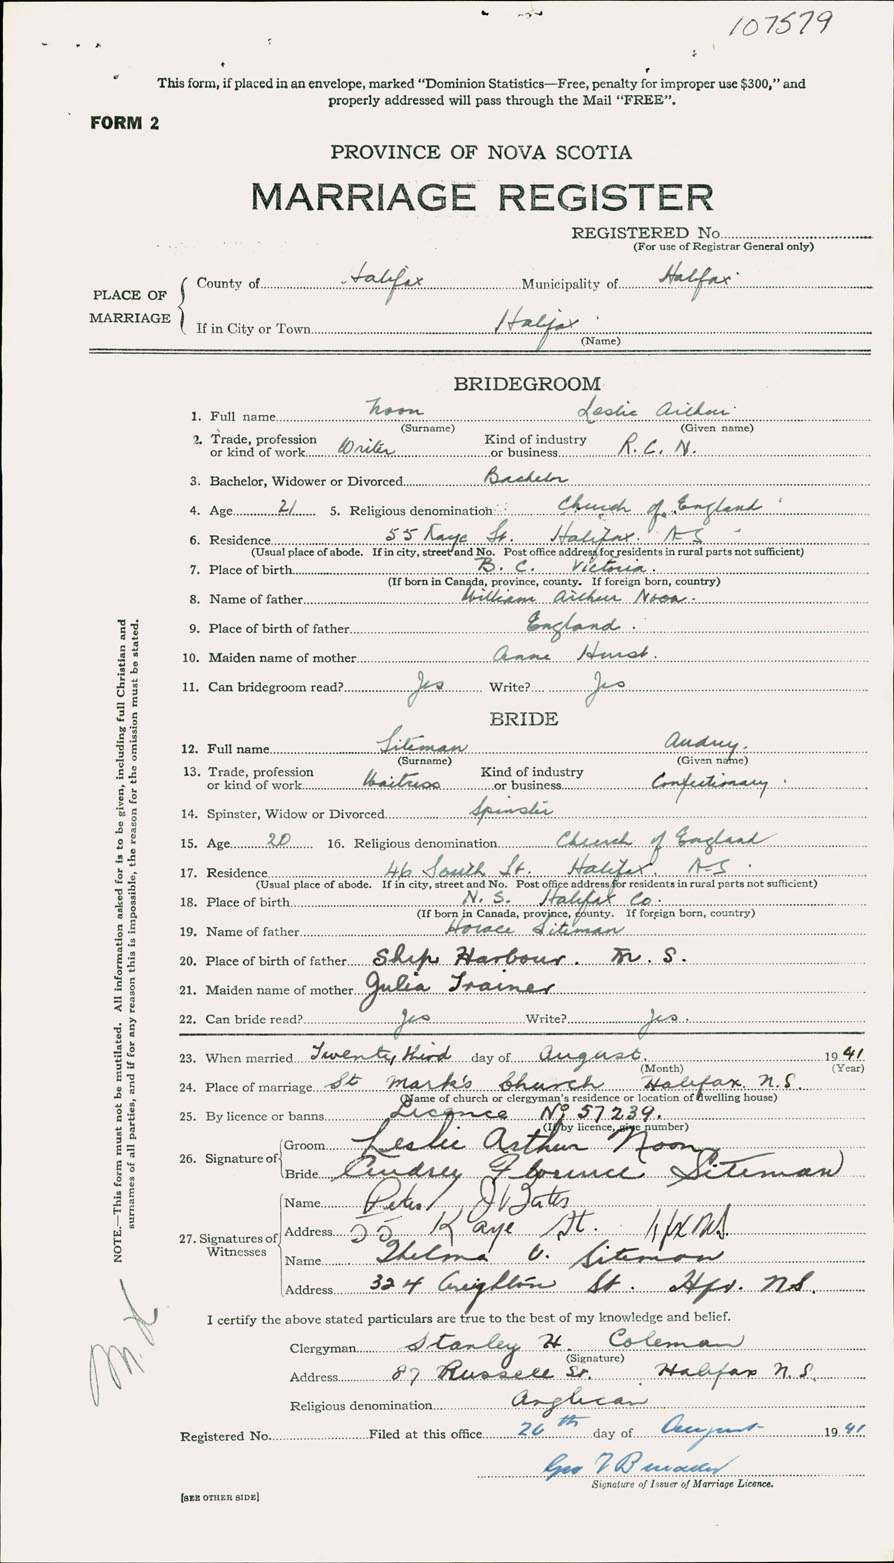 107579
This form, if placed in an envelope, marked "Dominion Statistics—Free, penalty for improper use $300," and
properly addressed will pass through the Mail "FREE".
FORM 2
PROVINCE OF NOVA SCOTIA
MARRIAGE REGISTER
REGISTERED No.
(For use of Registrar General only)
PLACE OF MARRIAGE
County of Halifax Municipality of Halifax
If in City or Town Halifax
(Name)
BRIDEGROOM
1. Full name Noon Leslie Arthur
(Surname) (Given name)
2. Trade, profession or kind of work Writer Kind of industry or business R.C.N.
3. Bachelor, Widower or Divorced Bachelor
4. Age 21 5. Religious denomination Church of England
6. Residence 55 Kaye St. Halifax N-S
(Usual place of abode. If in city, street and No. Post office address for residents in rural parts not sufficient)
7. Place of birth B.C. Victoria.
(If born in Canada, province, county. If foreign born, country)
8. Name of father William Arthur Noon.
9. Place of birth of father England.
10. Maiden name of mother Anne Hurst.
11. Can bridegroom read? Yes Write? Yes
BRIDE
12. Full name Siteman Audrey.
(Surname) (Given name)
13. Trade, profession or kind of work Waitress Kind of industry or business Confectionary.
14. Spinster, Widow or Divorced Spinster
15. Age 20 16. Religious denomination Church of England
17. Residence 46 South St. Halifax. N-S.
(Usual place of abode. If in city, street and No. Post office address for residents in rural parts not sufficient)
18. Place of birth N.S. Halifax Co.
(If born in Canada, province, county. If foreign born, country)
19. Name of father Horace Siteman
20. Place of birth of father Ship Harbour. N.S.
21. Maiden name of mother Julia Trainer
22. Can bride read? Yes Write? Yes.
23. When married Twenty third day of August. 1941
(Month) (Year)
24. Place of marriage St Mark's Church Halifax N.S.
(Name of church or clergyman's residence or location of dwelling house)
25. By licence or banns Licence No 57239.
(If by licence, give number)
26. Signature of
Groom Leslie Arthur Noon
Bride Audrey Florence Siteman
27. Signatures of Witnesses
Name Peter
Address 55 Kaye St. Hfx N.S.
Name Thelma V. Siteman
Address 324 Creighton St. Hfx. N.S.
I certify the above stated particulars are true to the best of my knowledge and belief.
Clergyman Stanley H. Coleman
(Signature)
Address 87 Russell St. Halifax N.S.
Religious denomination Anglican
Registered No. Filed at this office 26th day of August 1941
Geo
Signature of Issuer of Marriage Licence.
[SEE OTHER SIDE]
NOTE.—This form must not be mutilated. All information asked for is to be given, including full Christian and
surnames of all parties, and if for any reason this is impossible, the reason for the omission must be stated.